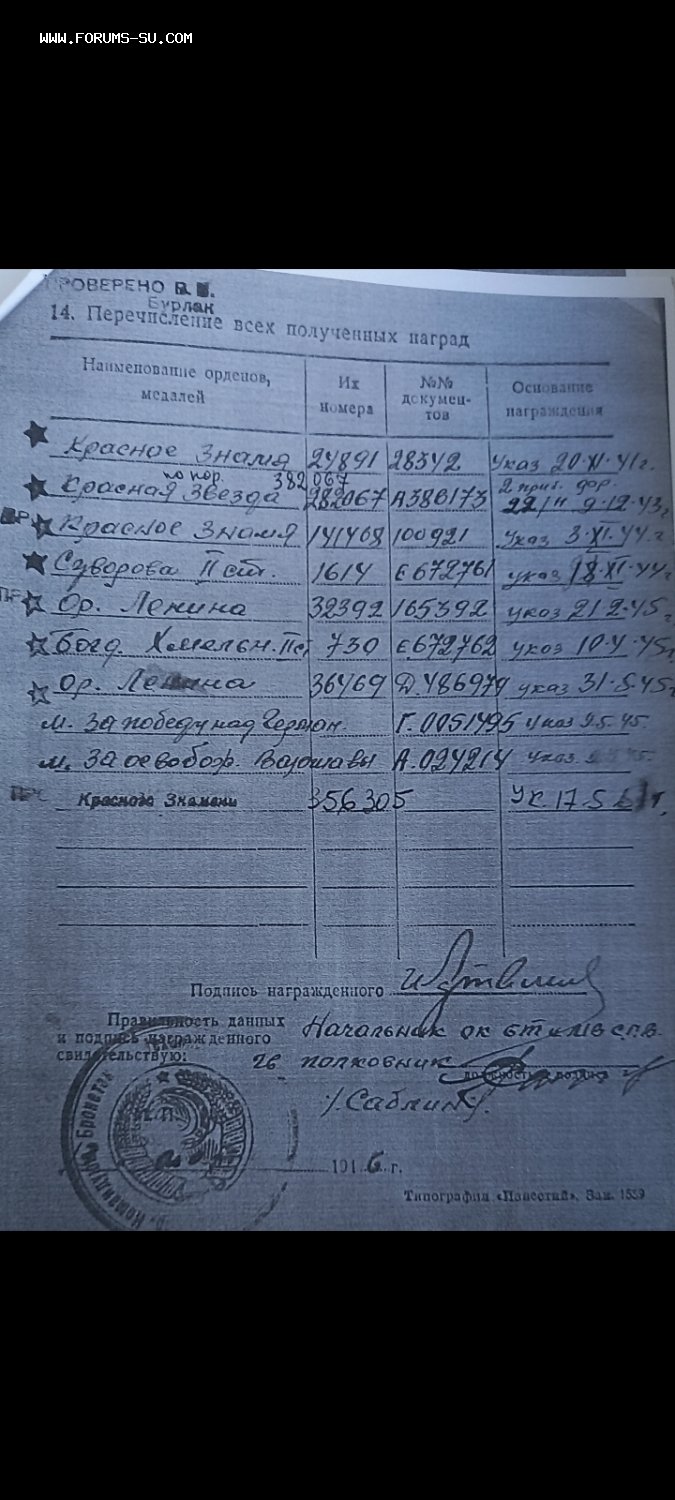 WWW.FORUMS-SU.COM
ПРОВЕРЕНО
Бурлак
14. Перечисление всех полученных наград
Наименование орденов, медалей
Их номера
№№ документов
Основание награждения
Красное Знамя 24891 28342 Указ 20.XI.41г.
по пор. 382067 2 приб. фр.
Красная Звезда 282067 А386173 22/н 9.12.43г
Красное Знамя 141468 100921 Указ 3.XI.44г
Суворова II ст. 1614 Е672761 указ 18.XI.44г
ПР Ор. Ленина 32392 165392 указ 21 2.45г
Богд. Хмельн. II ст 730 Е672762 указ 10.4.45г
Ор. Ленина 36469 Д.486979 указ 31.5.45г
м. За победу над Герман. Г.0051495 Указ 9.5.45.
м. За освобож. Варшавы А.024214 Указ
Красного Знамени 356305 Ук. 17.5.61г.
Подпись награжденного
Правильность данных
и подпись награжденного
свидетельствую:
Начальник ок БТиМВ СГВ.
гв полковник
должность и подпись
/.Саблин/.
1946 г.
Типография «Известий», Зак. 1559